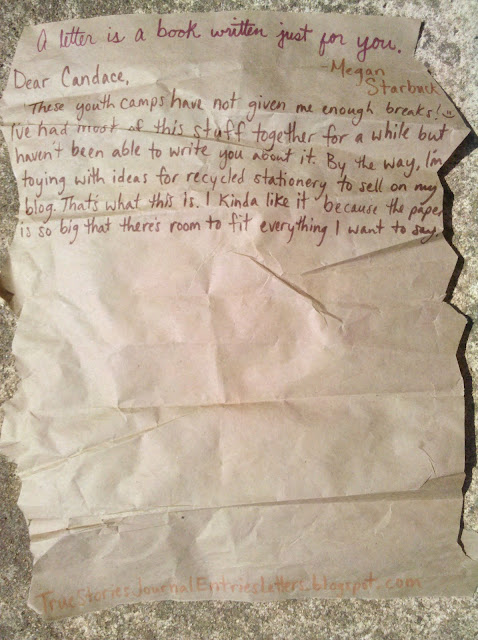 A letter is a book written just for you.
Megan
Starbuck
Dear Candace,
These youth camps have not given me enough breaks!
I've had most of this stuff together for a while but
haven't been able to write you about it. By the way, I'm
toying with ideas for recycled stationery to sell on my
blog. That's what this is. I kinda like it because the paper
is so big that there's room to fit everything I want to say
TrueStoriesJournalEntriesLetters.blogspot.com